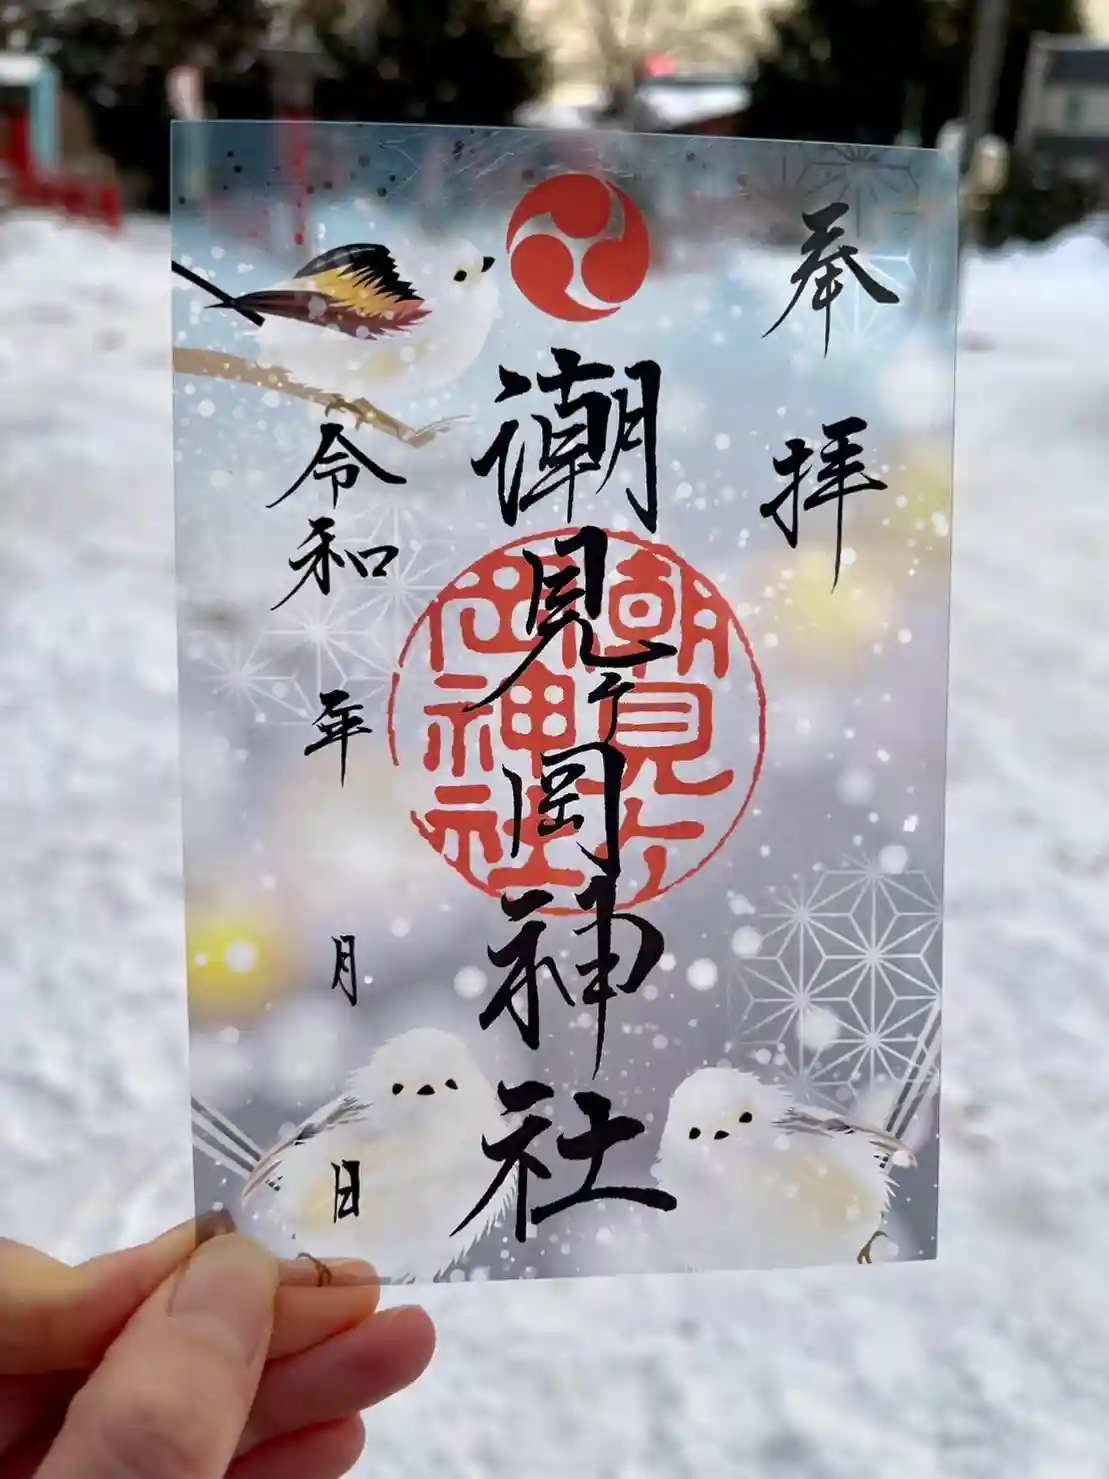 奉拝
潮見ケ岡神社
潮見ケ岡神社
令和 年 月 日